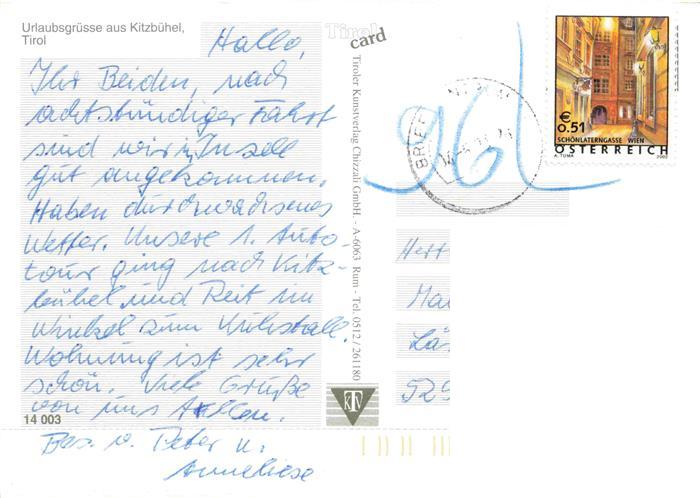 Urlaubsgrüsse aus Kitzbühel,
Tirol
Hallo,
Ihr Beiden, nach
achtstündiger Fahrt
sind wir in Insell
gut angekommen.
Haben durchwachsenes
Wetter. Unsere 1. Auto-
tour ging nach Kitz-
bühel und Reit im
Winkel zum Kuhstall.
Wohnung ist sehr
schön. Viele Grüße
von uns Allen.
Bes. v. Peter u.
Anneliese
14 003
Tirol
card
Tiroler Kunstverlag Chizzali GmbH. - A-6063 Rum - Tel. 0512/261180
KTV
BRIEF
€
0.51
SCHÖNLATERNGASSE WIEN
ÖSTERREICH
A. TUMA
2002
Herr
Ma
Lä
529